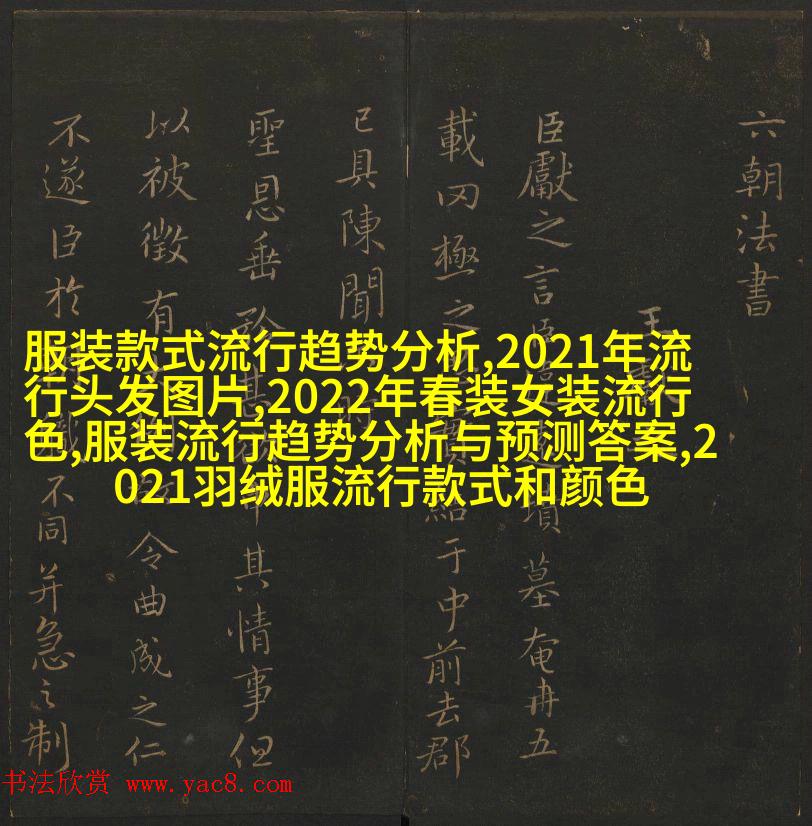 六朝法書
王
臣獻之言臣墳墓奄冉五
載罔極之于中前去郡
已具陳聞
聖恩垂其情事但
以被徵有令曲成之仁
不遂臣於不同并急之制
服装款式流行趋势分析,2021年流
行头发图片,2022年春装女装流行
色,服装流行趋势分析与预测答案,2
021羽绒服流行款式和颜色
书法欣赏 www.yac8.com